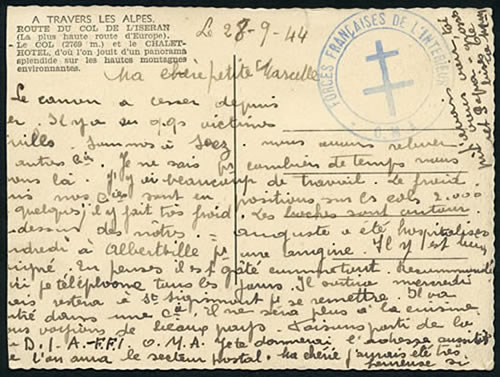 A TRAVERS LES ALPES.
ROUTE DU COL DE L'ISERAN
(La plus haute route d'Europe).
Le COL (2769 m.) et le CHALET-
HOTEL, d'où l'on jouit d'un panorama
splendide sur les hautes montagnes
environnantes.
Le 28-9-44
FORCES FRANÇAISES DE L'INTERIEUR
O.M.A
Ma chère petite Marcelle
Le canon a cesser depuis
er. Il y a eu qqs victimes
villes. Sommes à Séez. nous avons relever
autres Cies. Je ne sais ps combien de temps nous
ons là. J'y ai beaucoup de travail. Le froid
is nos Cies sont en positions sur les cols 2.000
quelques) il y fait très froid. Les boches sont autour
dessus des notres - auguste a été hospitalisé
ndredi à Albertville pr une angine. Il y est bien
igné. En penses il est gâté
ici je téléphone tous les jours. Il sortira mercredi
ais restera à St Sigismont ps se remettre. Il va
ntré dans une Cie. Il ne sera plus à la cuisine
ous voyions de beaux pays. Faisons parti de la
D.I.A. F.F.I. O.M.A. Je te donnerai l'adresse aussitôt
e l'on aura le secteur postal. Ma chérie j'aurais été très
heureuse si